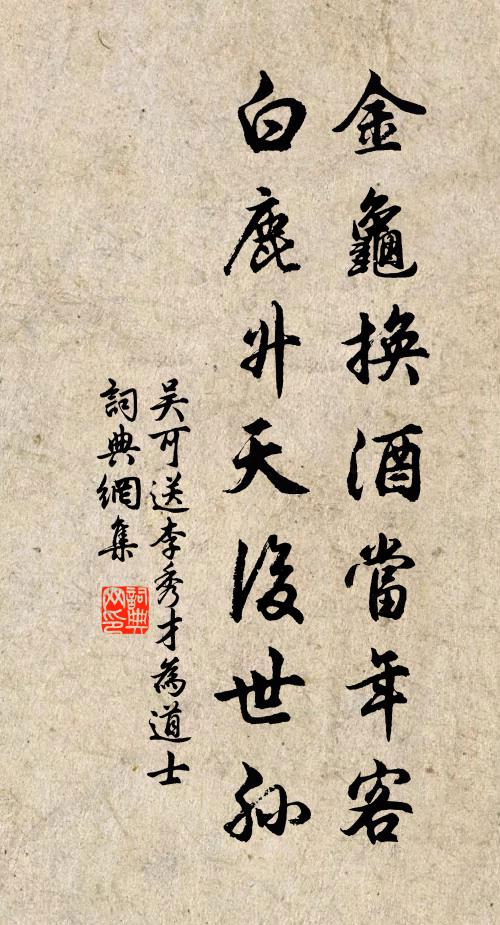 金龜換酒當年客
白鹿升天後世孫
吳可送李秀才為道士
詞典網集
詞典网印